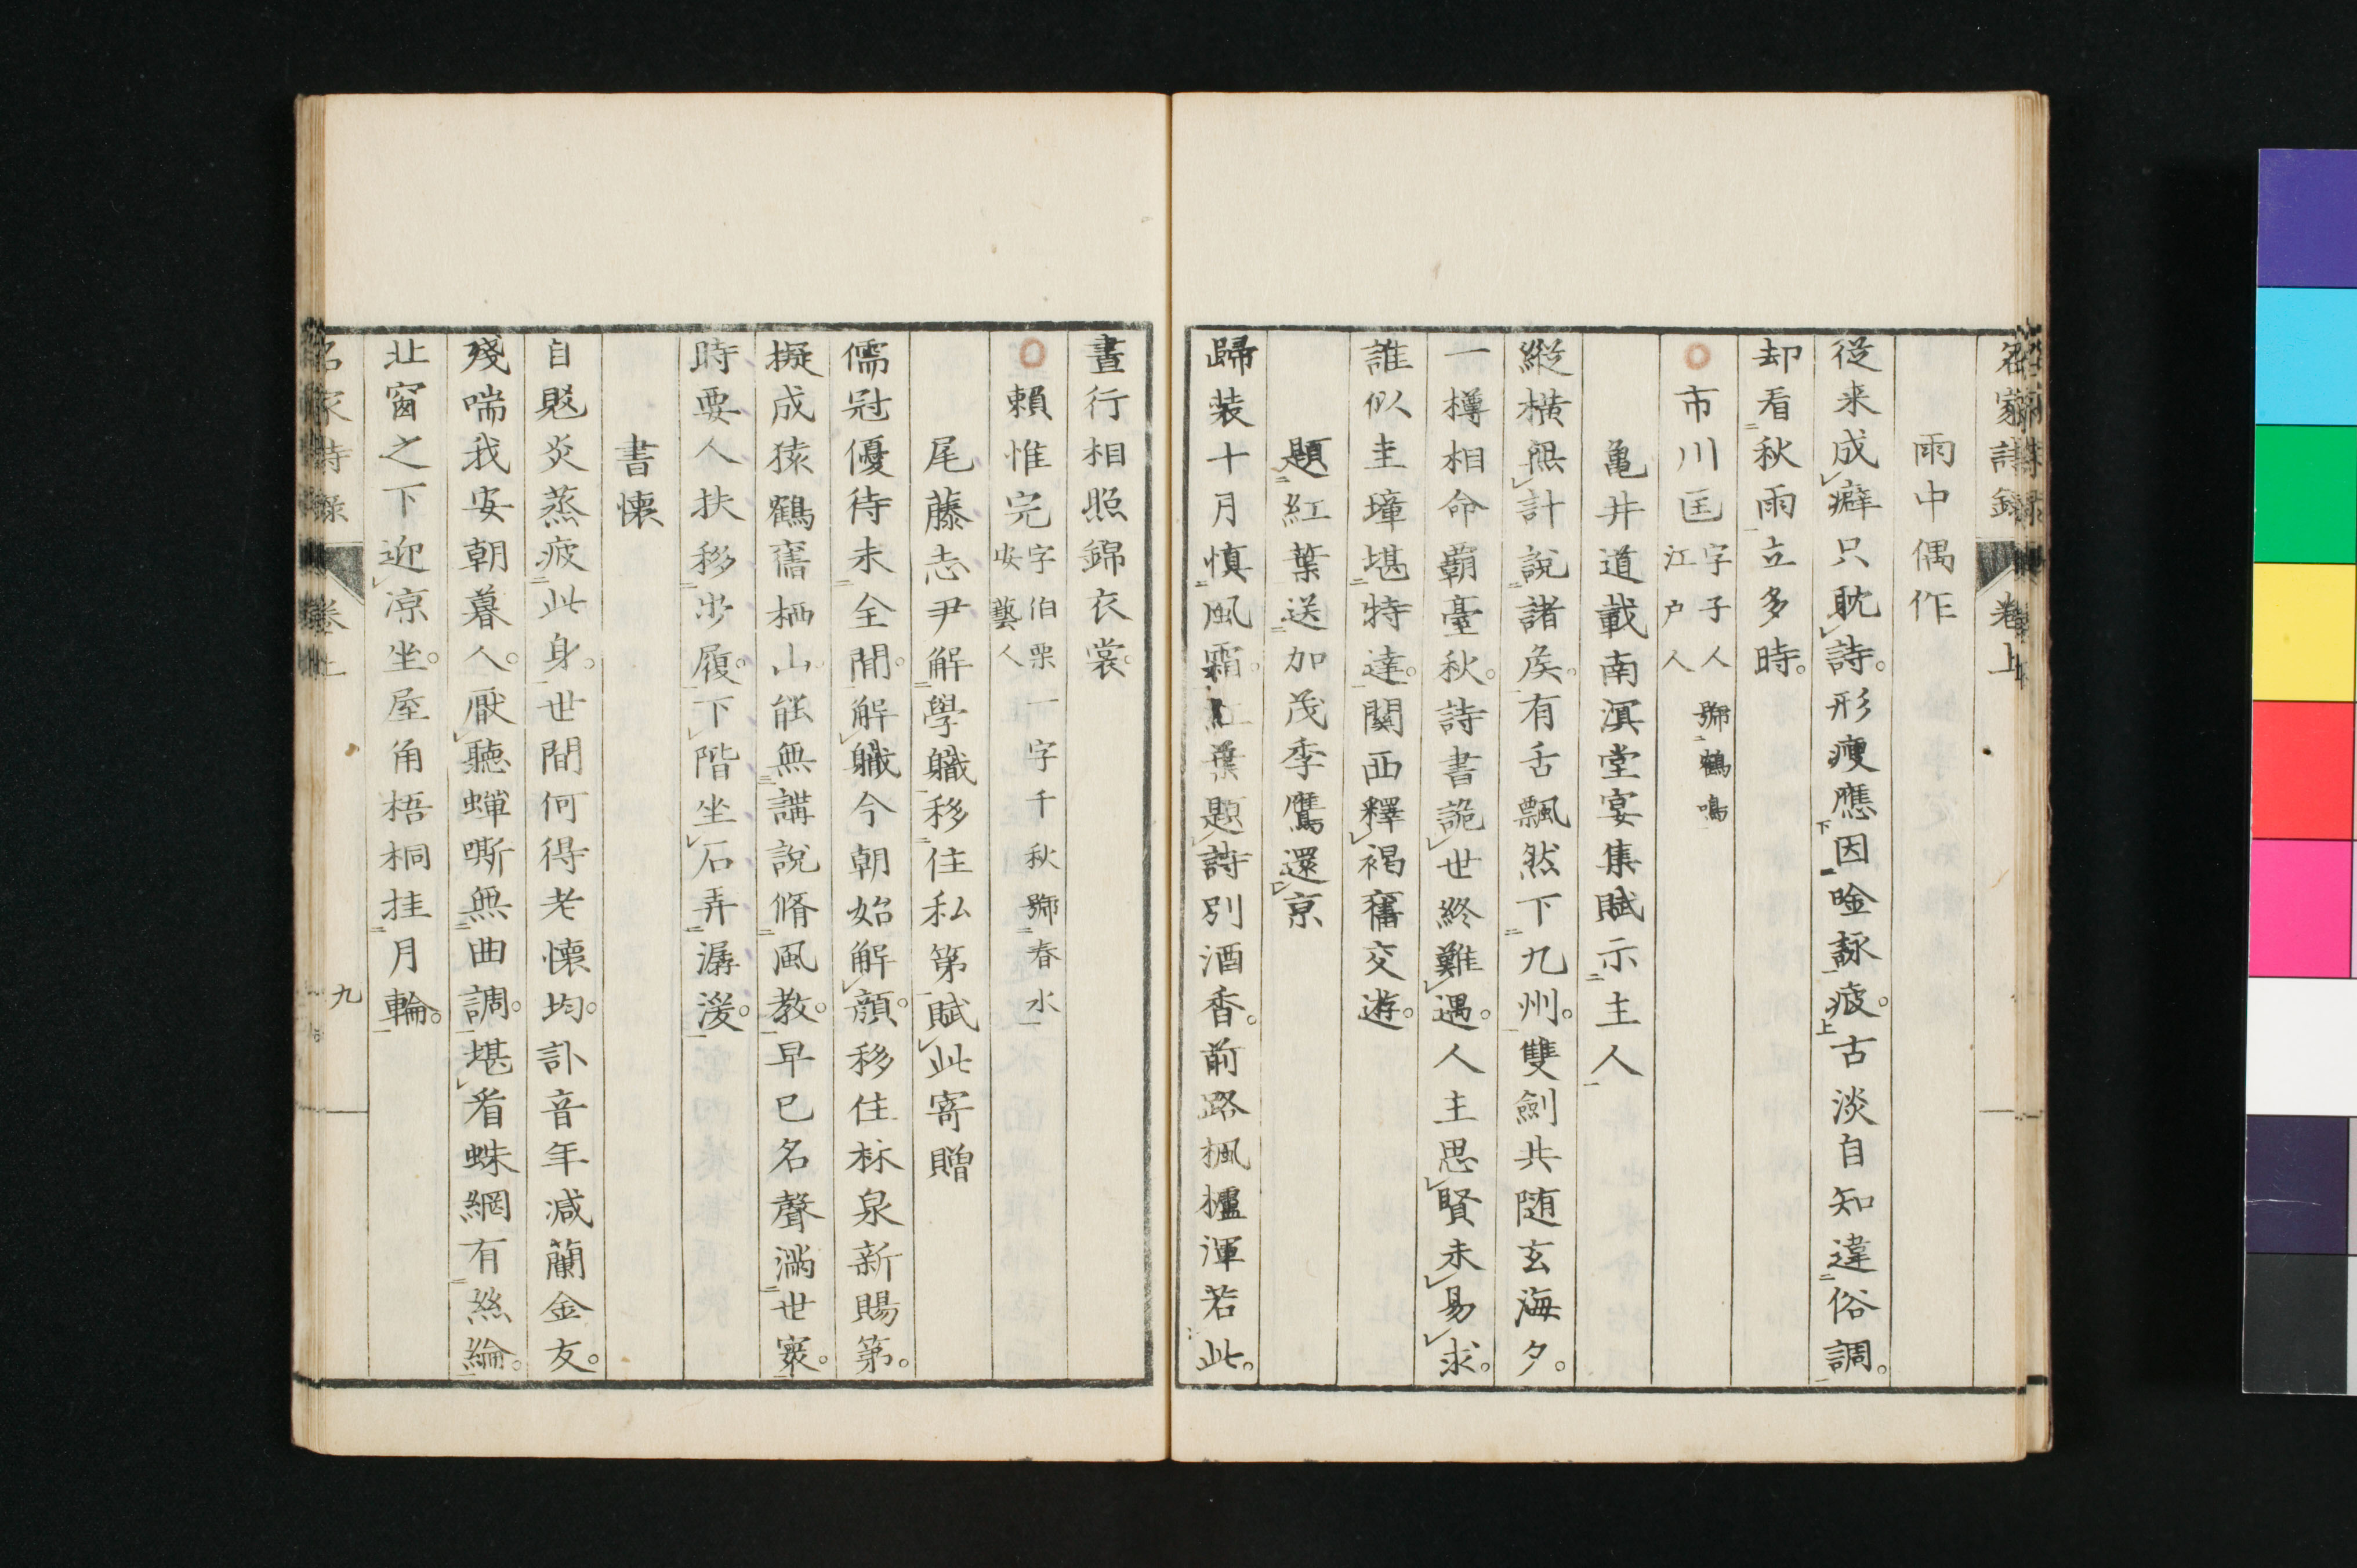 名家詩録 卷上
雨中偶作
從来成癖只耽詩。形瘦應因唫詠疲。古淡自知違俗調。
却看秋雨立多時。
市川匡 字子人 號鶴鳴
江戸人
亀井道載南溟堂宴集賦示主人
縱横無計説諸矦。有舌飄然下九州。雙劍共随玄海夕。
一樽相命覇臺秋。詩書詭世終難遇。人主思賢未易求。
誰似圭璋堪特達。關西釋褐舊交遊。
題紅葉送加茂季鷹還京
歸装十月慎風霜。紅葉題詩別酒香。前路楓櫨渾若此。
晝行相照錦衣裳。
頼惟完 字伯栗一字千秋號春水
安藝人
尾藤志尹解學職移住私第賦此寄贈
儒冠優待未全閒。解職今朝始解顔。移住林泉新賜第。
擬成猿鶴舊栖山。能無講説脩風教。早已名聲滿世寰。
時要人扶移歩履。下階坐石弄潺湲。
書懷
自覎炎蒸疲此身。世間何得老懷均。訃音年减蘭金友。
殘喘我安朝暮人。厭聽蟬嘶無曲調。堪看蛛網有絲綸。
北窗之下迎凉坐。屋角梧桐挂月輪。
名家詩録 卷上 九